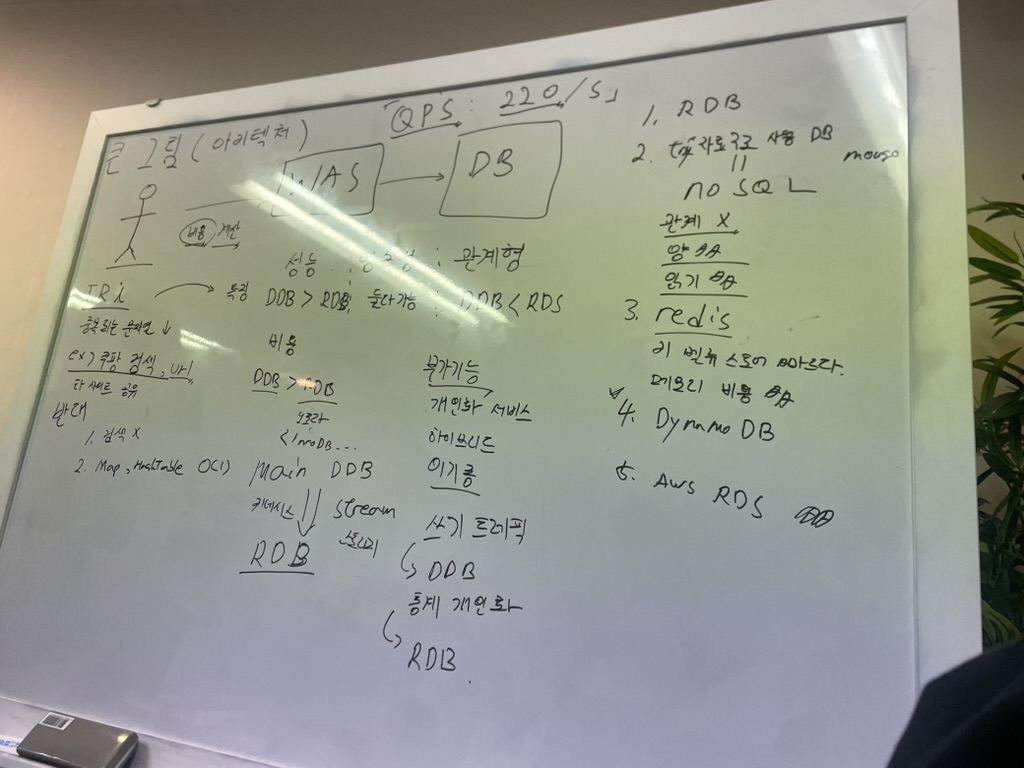 큰 그림 (아키텍처)
「QPS : 220/s」
WAS
DB
비용 계산
성능 : 관계형
TRi
특징 DDB > RDB 둘다가능 : DDB < RDS
중복되는 문자열 ↓
ex) 쿠팡 검색, url
타 사이트 공유
반대
1. 검색 X
2. Map, HashTable O(1)
비용
DDB > RDB
오로라
< InnoDB...
Main DDB
키네시스
Stream
RDB
부가기능
개인화 서비스
하이브리드
이기종
쓰기 트래픽
DDB
통계 개인화
RDB.
1. RDB
2. 자료구조 사용 DB
mongo
no SQL
관계 X
양
읽기
3. redis
키 밸류 스토어 빠르다.
메모리 비용
4. Dynamo DB
5. Aws RDS